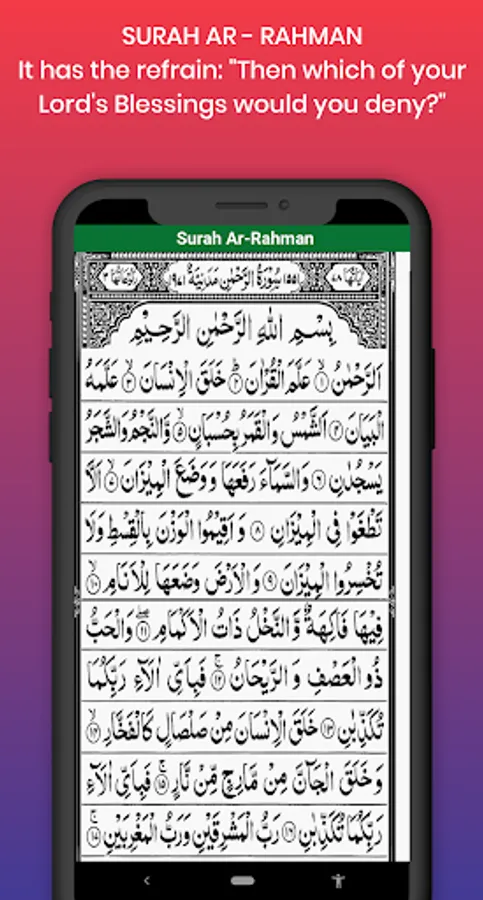 SURAH AR - RAHMAN
It has the refrain: "Then which of your
Lord's Blessings would you deny?"
Surah Ar-Rahman
(۵۵) سُوْرَةُ الرَّحْمٰنِ مَدَنِيَّةٌ (۹۷)
بِسْمِ اللّٰهِ الرَّحْمٰنِ الرَّحِيْمِ
اَلرَّحْمٰنُ ۙ﴿۱﴾ عَلَّمَ الْقُرْاٰنَ ؕ﴿۲﴾ خَلَقَ الْاِنْسَانَ ۙ﴿۳﴾ عَلَّمَهُ
الْبَيَانَ ﴿۴﴾ اَلشَّمْسُ وَالْقَمَرُ بِحُسْبَانٍ ۪﴿۵﴾ وَّالنَّجْمُ وَالشَّجَرُ
يَسْجُدٰنِ ﴿۶﴾ وَالسَّمَآءَ رَفَعَهَا وَوَضَعَ الْمِيْزَانَ ۙ﴿۷﴾ اَلَّا
تَطْغَوْا فِى الْمِيْزَانِ ﴿۸﴾ وَاَقِيْمُوا الْوَزْنَ بِالْقِسْطِ وَلَا
تُخْسِرُوا الْمِيْزَانَ ﴿۹﴾ وَالْاَرْضَ وَضَعَهَا لِلْاَنَامِ ۙ﴿۱۰﴾
فِيْهَا فَاكِهَةٌ ۪ۙ وَّالنَّخْلُ ذَاتُ الْاَكْمَامِ ۖ﴿۱۱﴾ وَالْحَبُّ
ذُو الْعَصْفِ وَالرَّيْحَانُ ۚ﴿۱۲﴾ فَبِاَىِّ اٰلَآءِ رَبِّكُمَا
تُكَذِّبٰنِ ﴿۱۳﴾ خَلَقَ الْاِنْسَانَ مِنْ صَلْصَالٍ كَالْفَخَّارِ ۙ﴿۱۴﴾
وَخَلَقَ الْجَآنَّ مِنْ مَّارِجٍ مِّنْ نَّارٍ ۚ﴿۱۵﴾ فَبِاَىِّ اٰلَآءِ
رَبِّكُمَا تُكَذِّبٰنِ ﴿۱۶﴾ رَبُّ الْمَشْرِقَيْنِ وَرَبُّ الْمَغْرِبَيْنِ ۚ﴿۱۷﴾